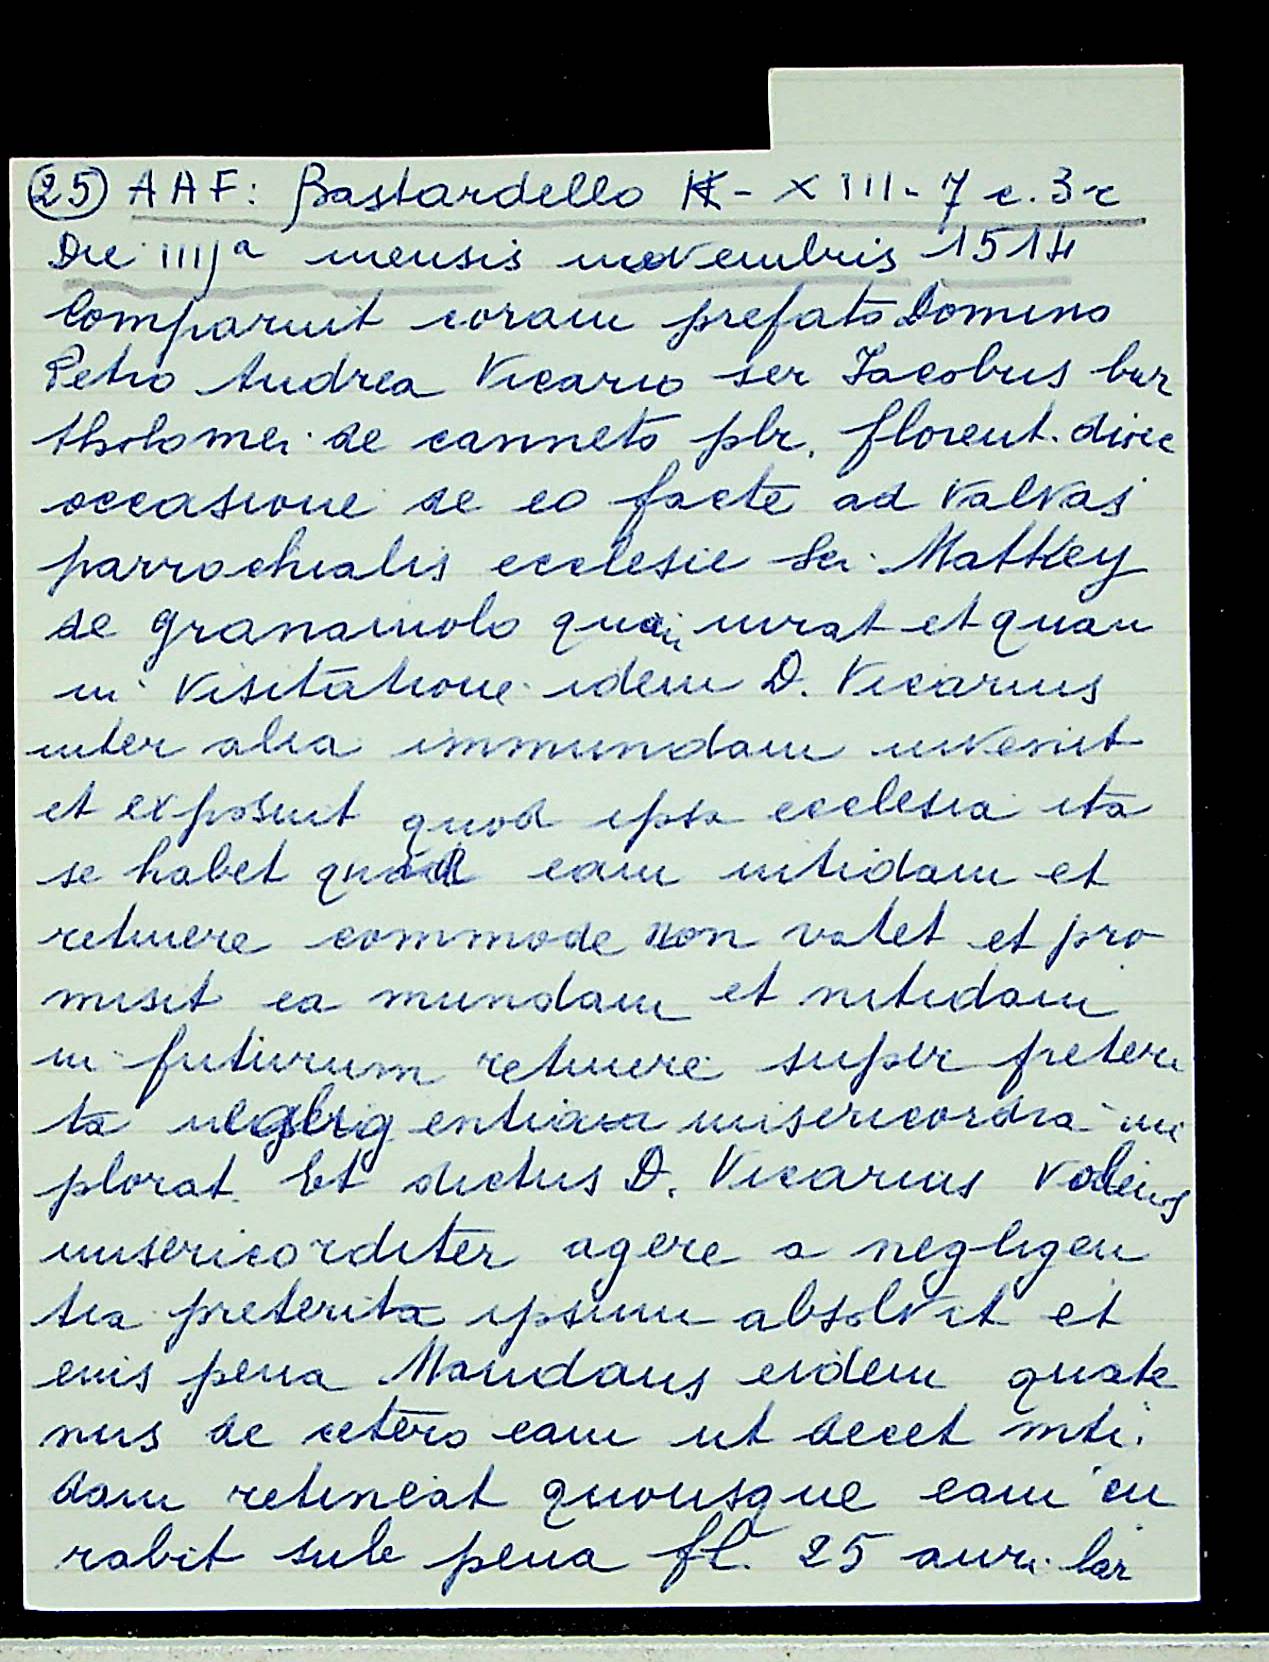 (25) AAF: Bastardello K - XIII - 7 c. 3r
Die IIIJª mensis novembris 1514
Comparuit coram prefato Domino
Petro Andrea Vicario ser Jacobus bar
tholomei de canneto pbr. florent. dioc
occasione de eo facte ad valvas
parrochialis ecclesie Sci. Matthey
de granaiuolo quam curat et quam
in visitatione idem D. Vicarius
inter alia immundam invenit
et exposuit quod ipsa ecclesia ita
se habet quod eam nitidam et
retinere commode non valet et pro
misit ea mundam et nitidam
in futurum retinere super preteri
ta negligentia misericordia im
plorat. Et dictus D. Vicarius volens
misericorditer agere a negligen
tia preterita ipsum absolvit et
eius pena Mandans eidem quate
nus de cetero eam ut decet niti.
dam retineat quousque eam cu
rabit sub pena fl. 25 auri lar